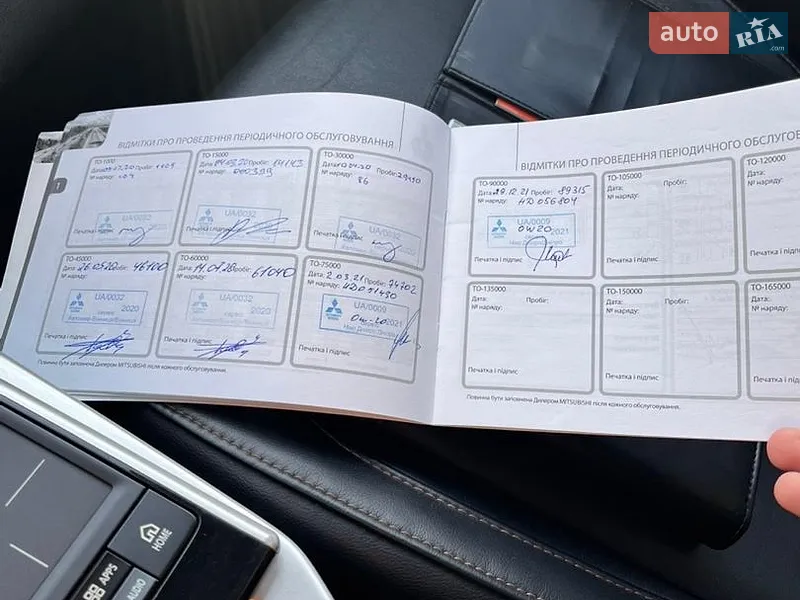 auto RIA .com
ВІДМІТКИ ПРО ПРОВЕДЕННЯ ПЕРІОДИЧНОГО ОБСЛУГОВУВАННЯ
ТО-1000
Дата: Пробіг:
№ наряду:
UA/0032
Печатка і підпис
ТО-15000
Дата: 04.03.20 Пробіг: 14143
№ наряду:
UA/0032
Печатка і підпис
ТО-30000
Дата: Пробіг: 29450
№ наряду: 86
UA/0032
Печатка і підпис
ТО-45000
Дата: 26.05.20 Пробіг: 46100
№ наряду:
UA/0032
2020
Печатка і підпис
ТО-60000
Дата: 14.07.20 Пробіг: 61040
№ наряду:
UA/0032
2020
Печатка і підпис
ТО-75000
Дата: 2.03.21 Пробіг: 74702
№ наряду: НД051430
UA/0009
2021
Печатка і підпис
Повинна бути заповнена Дилером MITSUBISHI після кожного обслуговування.
1
ВІДМІТКИ ПРО ПРОВЕДЕННЯ ПЕРІОДИЧНОГО ОБСЛУГОВУ
ТО-90000
Дата: 29.12.21 Пробіг: 89315
№ наряду: НД056804
UA/0009
0W20 2021
Печатка і підпис
ТО-105000
Дата: Пробіг:
№ наряду:
Печатка і підпис
ТО-120000
Дата:
№ наряду:
Печатка і
ТО-135000
Дата: Пробіг:
№ наряду:
Печатка і підпис
ТО-150000
Дата: Пробіг:
№ наряду:
Печатка і підпис
ТО-165000
Дата:
№ наряду:
Печатка і
Повинна бути заповнена Дилером MITSUBISHI після кожного обслуговування.
HOME
APPS
AUDIO